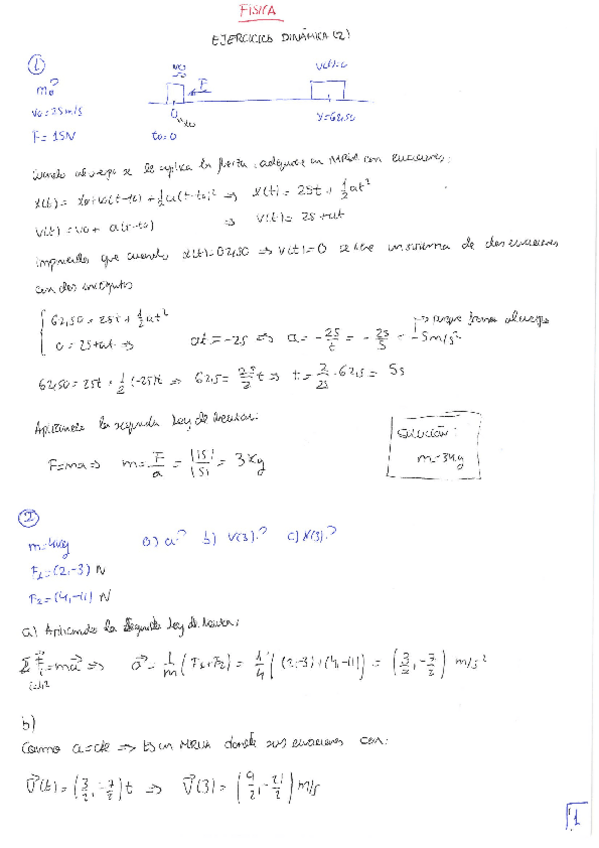 FISICA
EJERCICIOS DINÁMICA (2)
1
m?
v0 = 25 m/s
F = 15N
v0
F
v(t)=0
0
x0
t0=0
x=62,50
Cuando al cuerpo se le aplica la fuerza, adquiere un MRUA con ecuaciones:
x(t) = x0+v0(t-t0)+½a(t-t0)² ⇒ x(t) = 25t + ½at²
v(t) = v0 + a(t-t0) ⇒ v(t) = 25+at
que cuando x(t)=62,50 ⇒ v(t)=0 se tiene un sistema de dos ecuaciones
con dos incógnitas
62,50 = 25t + ½at²
0 = 25+at ⇒ at = -25 ⇒ a = -25/t = -25/5 = -5m/s²
→ porque frena al cuerpo
62,50 = 25t + ½(-25)t ⇒ 62,5 = 25/2 t ⇒ t = 2/25 · 62,5 = 5s
Aplicando la segunda Ley de Newton:
F=ma ⇒ m = F/a = |15|/|5| = 3Kg
SOLUCIÓN:
m=3Kg
2
m=4Kg
a) a? b) V(3)? c) X(3)?
F1=(2,-3) N
F2=(4,-11) N
a) Aplicando la Segunda Ley de Newton:
Σ F⃗i = ma⃗ ⇒ a⃗ = 1/m (F1+F2) = 1/4 [(2,-3)+(4,-11)] = (3/2, -7/2) m/s²
i=1,2
b)
Como a=cte ⇒ Es un MRUA donde sus ecuaciones son:
V⃗(t) = (3/2, -7/2)t ⇒ V⃗(3) = (9/2, -21/2) m/s
1